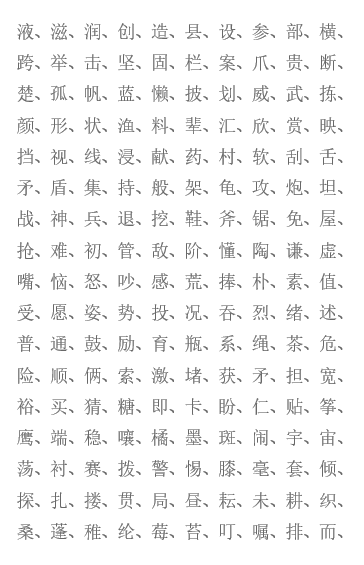 液、滋、润、创、造、县、设、参、部、横、
跨、举、击、坚、固、栏、案、爪、贵、断、
楚、孤、帆、蓝、懒、披、划、威、武、拣、
颜、形、状、渔、料、辈、汇、欣、赏、映、
挡、视、线、浸、献、药、村、软、刮、舌、
矛、盾、集、持、般、架、龟、攻、炮、坦、
战、神、兵、退、挖、鞋、斧、锯、免、屋、
抢、难、初、管、敌、阶、懂、陶、谦、虚、
嘴、恼、怒、吵、感、荒、捧、朴、素、值、
受、愿、姿、势、投、况、吞、烈、绪、述、
普、通、鼓、励、育、瓶、系、绳、茶、危、
险、顺、俩、索、激、堵、获、矛、担、宽、
裕、买、猜、糖、即、卡、盼、仁、贴、筝、
鹰、端、稳、嚷、橘、墨、斑、闹、宇、宙、
荡、衬、赛、拨、警、惕、膝、毫、套、倾、
探、扎、搂、贯、局、昼、耘、未、耕、织、
桑、蓬、稚、纶、莓、苔、叮、嘱、排、而、